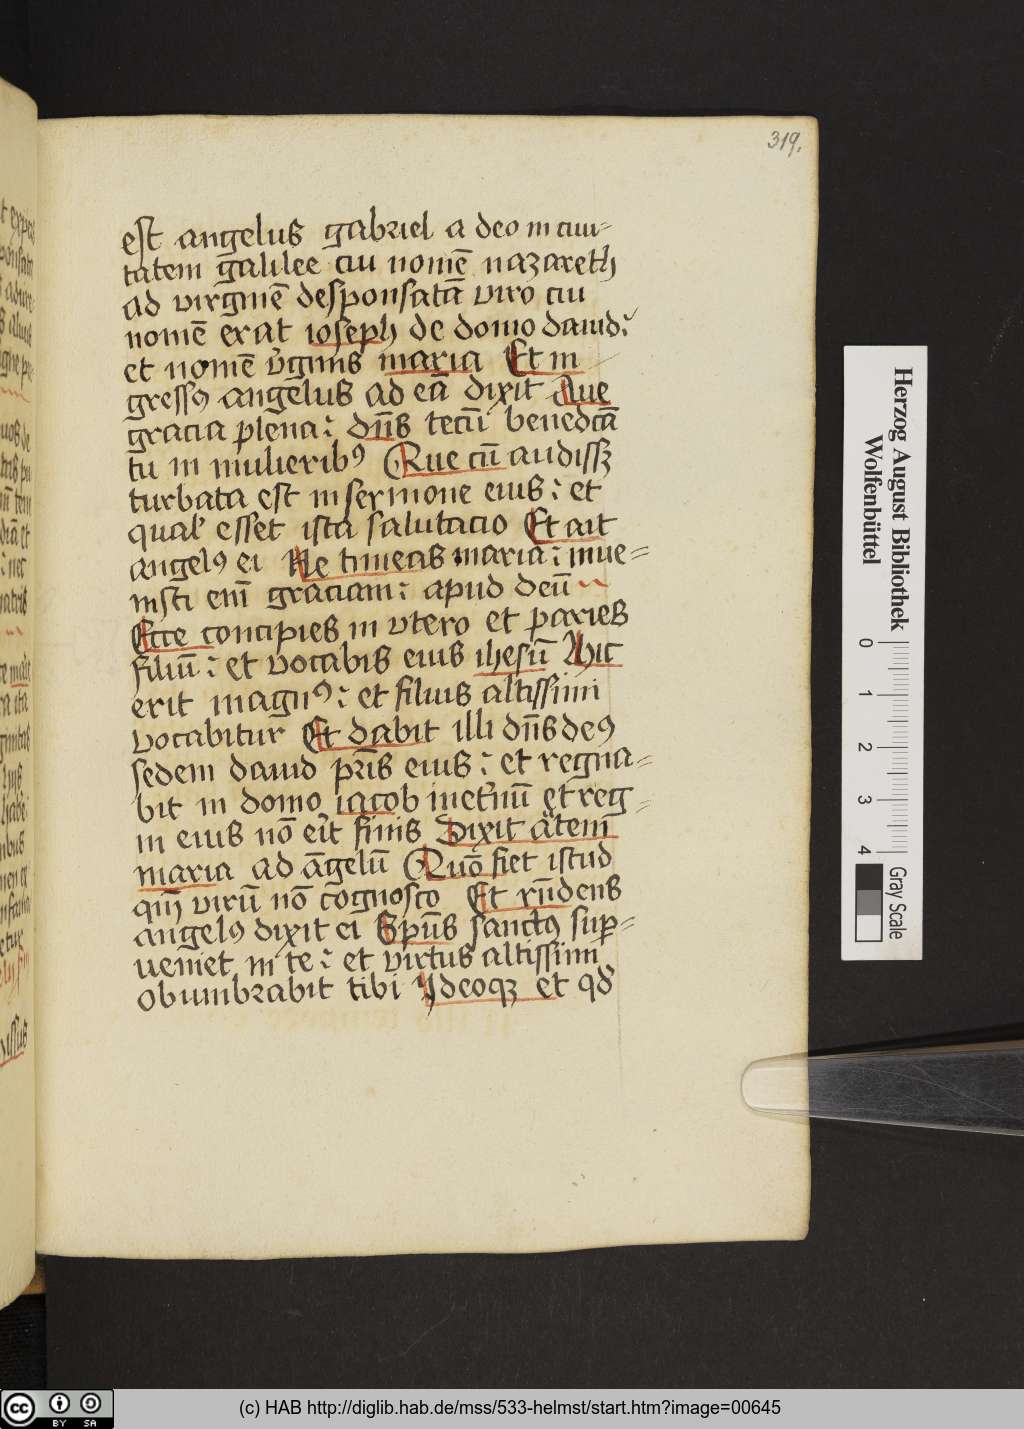 319.
est angelus gabriel a deo in ciui-
tatem galilee cui nomē nazareth
ad virginē desponsatā viro cui
nomē erat ioseph de domo dauid:
et nomē v̾ginis maria Et in
gressꝯ angelus ad eā dixit Aue
gracia plena: dn̄s tecū benedcā
tu in mulieribꝯ Que cū audissꝫ
turbata est in sermone eius: et
qual' esset ista salutacio Et ait
angelꝯ ei Ne timeas maria: inue=
nisti em̄ graciam: apud deū
Ecce concipies in vtero et paries
filiū: et vocabis eius ihesū Hic
erit magnꝯ: et filius altissimi
vocabitur Et dabit illi dn̄s deꝯ
sedem dauid pr̄is eius: et regna=
bit in domo iacob inet̾nū et reg=
in eius nō er̾it finis Dixit āteni
maria ad āgelū Quō fiet istud
qm̄ virū nō cōgnosco Et rn̄dens
angelꝯ dixit ei Spūs sanctꝯ suꝑ=
ueniet in te: et virtus altissimi
obumbrabit tibi Ideoqꝫ et qd̾
Herzog August Bibliothek
Wolfenbüttel
0
1
2
3
4
Gray Scale
cc BY SA
(c) HAB http://diglib.hab.de/mss/533-helmst/start.htm?image=00645